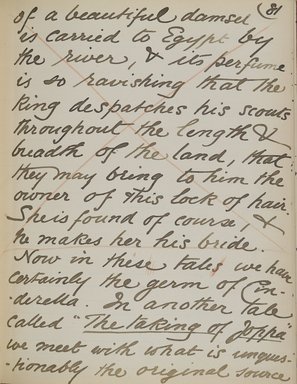 81
of a beautiful damsel
is carried to Egypt by
the river, & its perfume
is so ravishing that the
King despatches his scouts
throughout the length &
breadth of the land, that
they may bring to him the
owner of this lock of hair.
She is found of course, &
he makes her his bride.
Now in these tales we have
certainly the germ of Cin-
-derella. In another tale
called "The taking of Joppa"
we meet with what is unques-
-tionably the original source